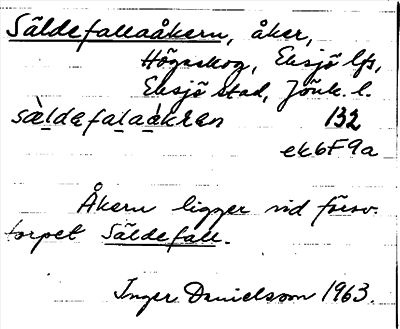 Säldefallaåkern, åker,
Högaskog, Eksjö lfs,
Eksjö stad, Jönk. l.
sàldefalaàkren 132
ek6F9a
Åkern ligger vid försv.
torpet Säldefall.
Inger Danielsson 1963.